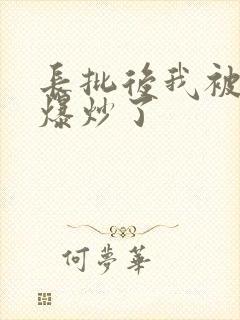 長批後我被
爆炒了
何夢華